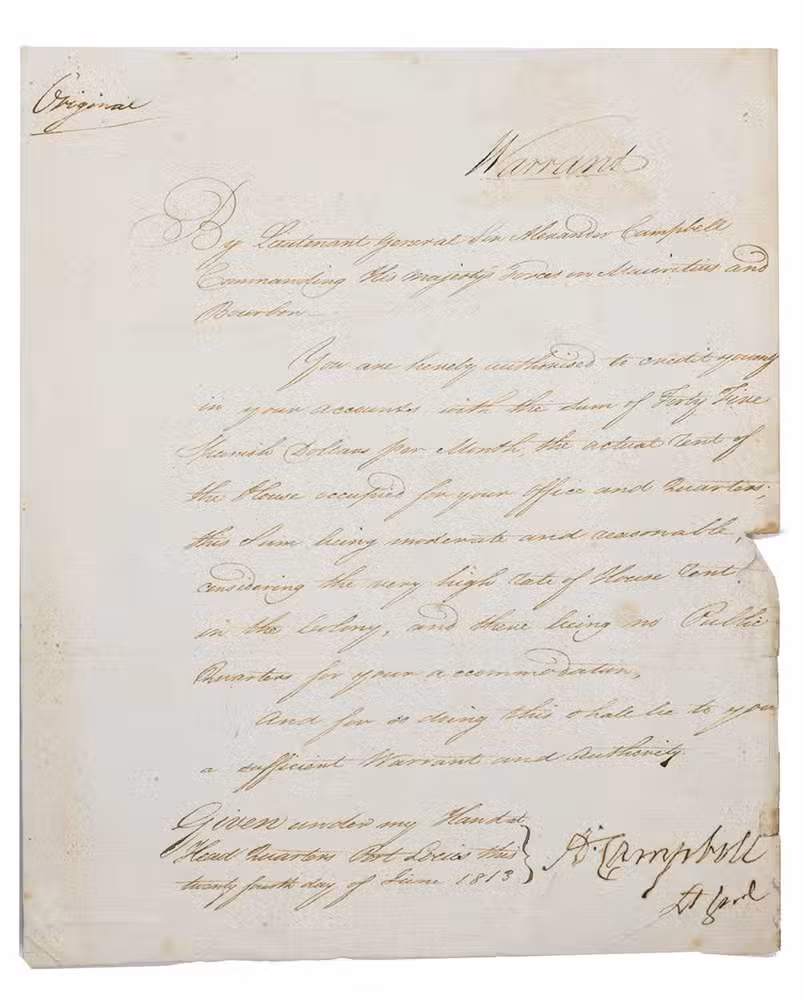 Original
Warrant
By Lieutenant General Sir Alexander Campbell
Commanding His Majesty's Forces in Mauritius and
Bourbon—
You are hereby authorised to credit yourself
in your accounts with the sum of Forty Five
Spanish Dollars per Month, the actual rent of
the House occupied for your Office and Quarters;
this Sum being moderate and reasonable,
considering the very high rate of House rent
in the Colony, and there being no Public
Quarters for your accommodation,
And for so doing this shall be to you
a sufficient Warrant and Authority.
Given under my Hand at
Head Quarters Port Louis this
twenty fourth day of June 1813
A. Campbell
Lt Genl